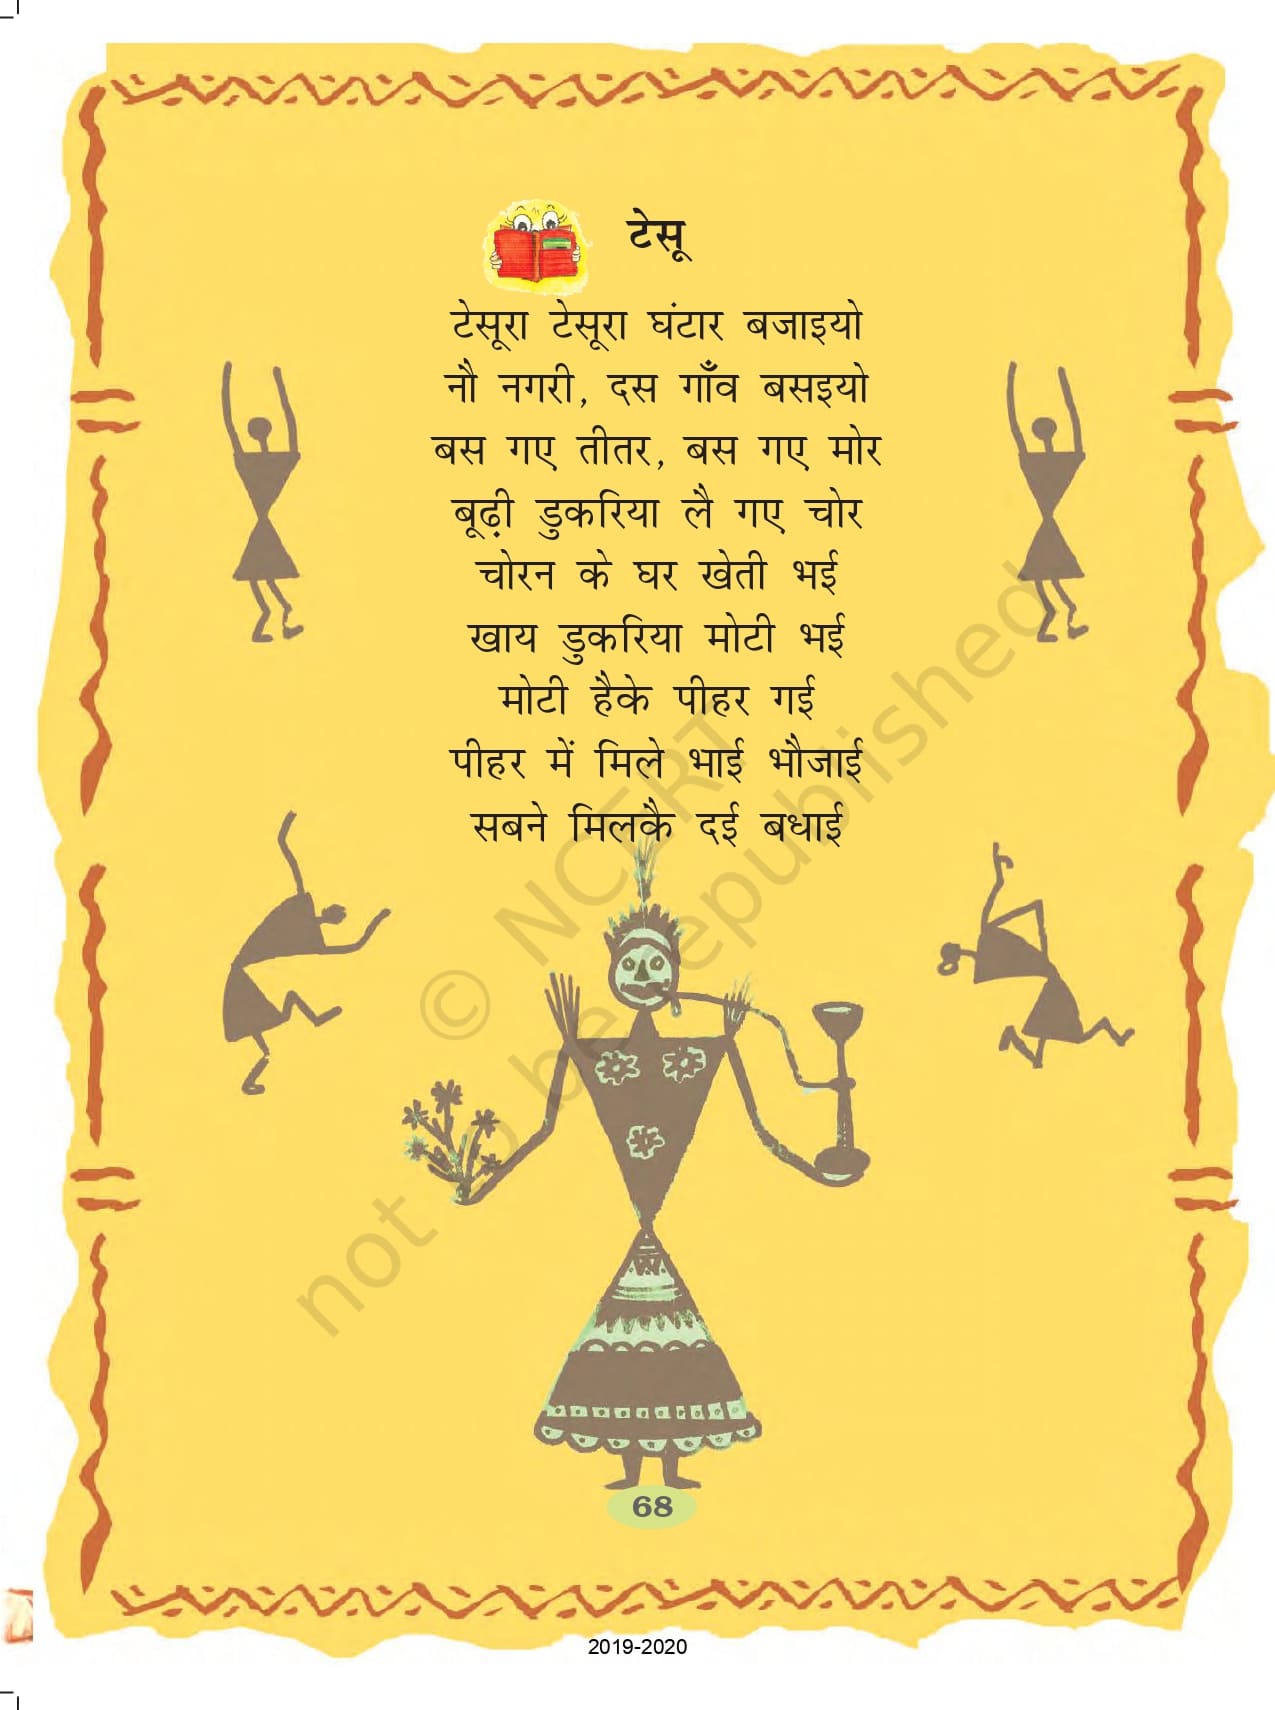 टेसू
टेसूरा टेसूरा घंटार बजाइयो
नौ नगरी, दस गाँव बसइयो
बस गए तीतर, बस गए मोर
बूढ़ी डुकरिया लै गए चोर
चोरन के घर खेती भई
खाय डुकरिया मोटी भई
मोटी हैके पीहर गई
पीहर में मिले भाई भौजाई
सबने मिलकै दई बधाई
© NCERT
not to be republished
68
2019-2020